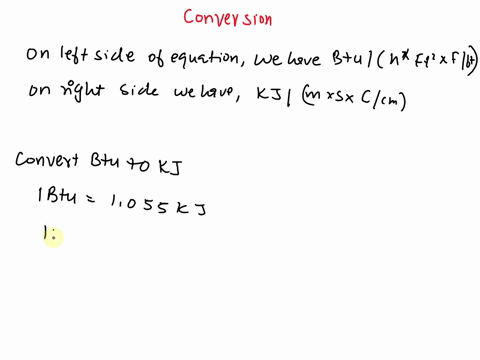 Conversion
On left side of equation, we have Btu/(h* Ft² x F/ft)
on right side we have, KJ/(m x s x C/cm)
Convert Btu to KJ
1Btu = 1.055 KJ
1: